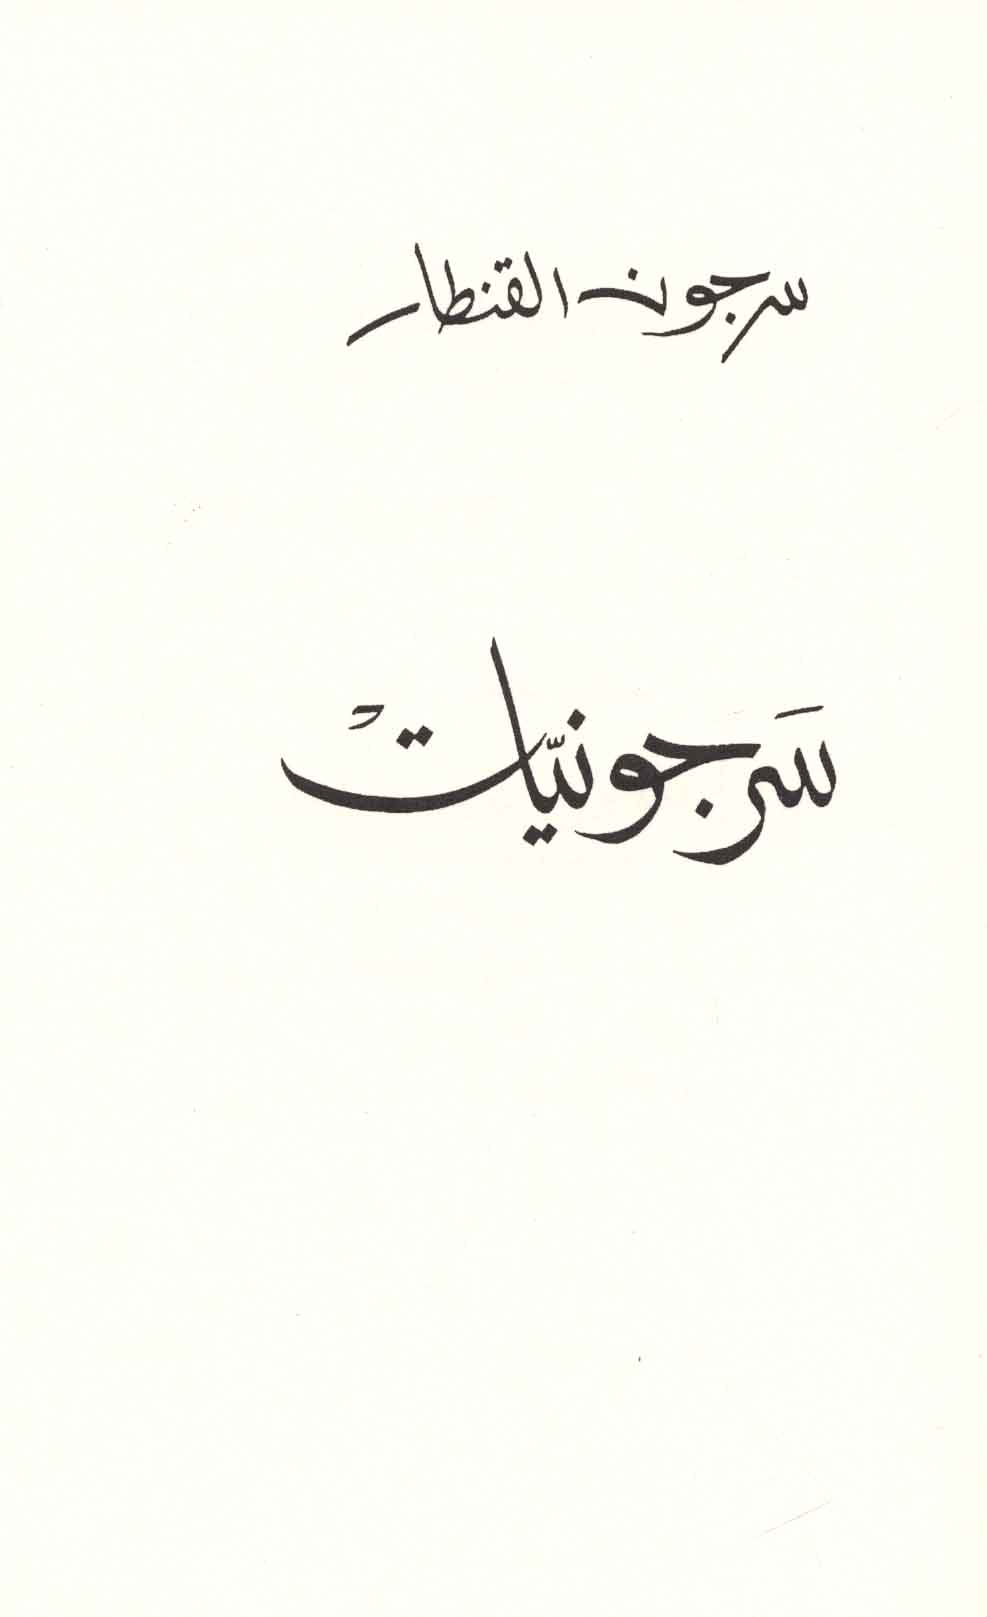 سرجون القنطار
سَرجونيّاتْ